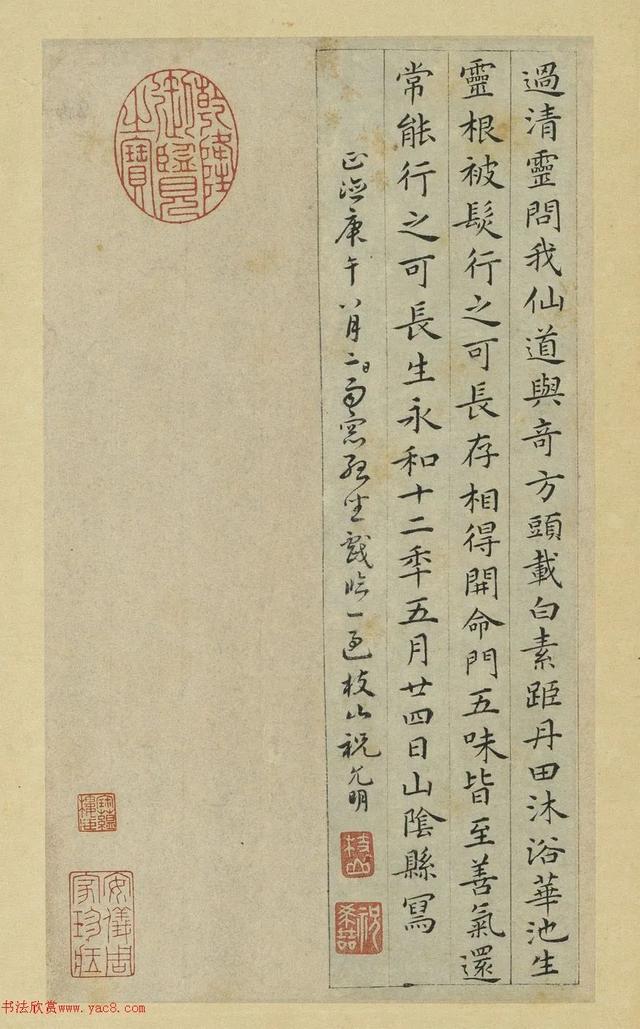 過清靈問我仙道與奇方頭載白素距丹田沐浴華池生
靈根被髮行之可長存相得開命門五味皆至善氣還
常能行之可長生永和十二秊五月廿四日山陰縣寫
正德庚午八月二日雨窓坐戲臨一過枝山祝允明
枝山
祝希喆
乾隆御覽之寶
安儀周家珍藏
书法欣赏→www.yac8.com